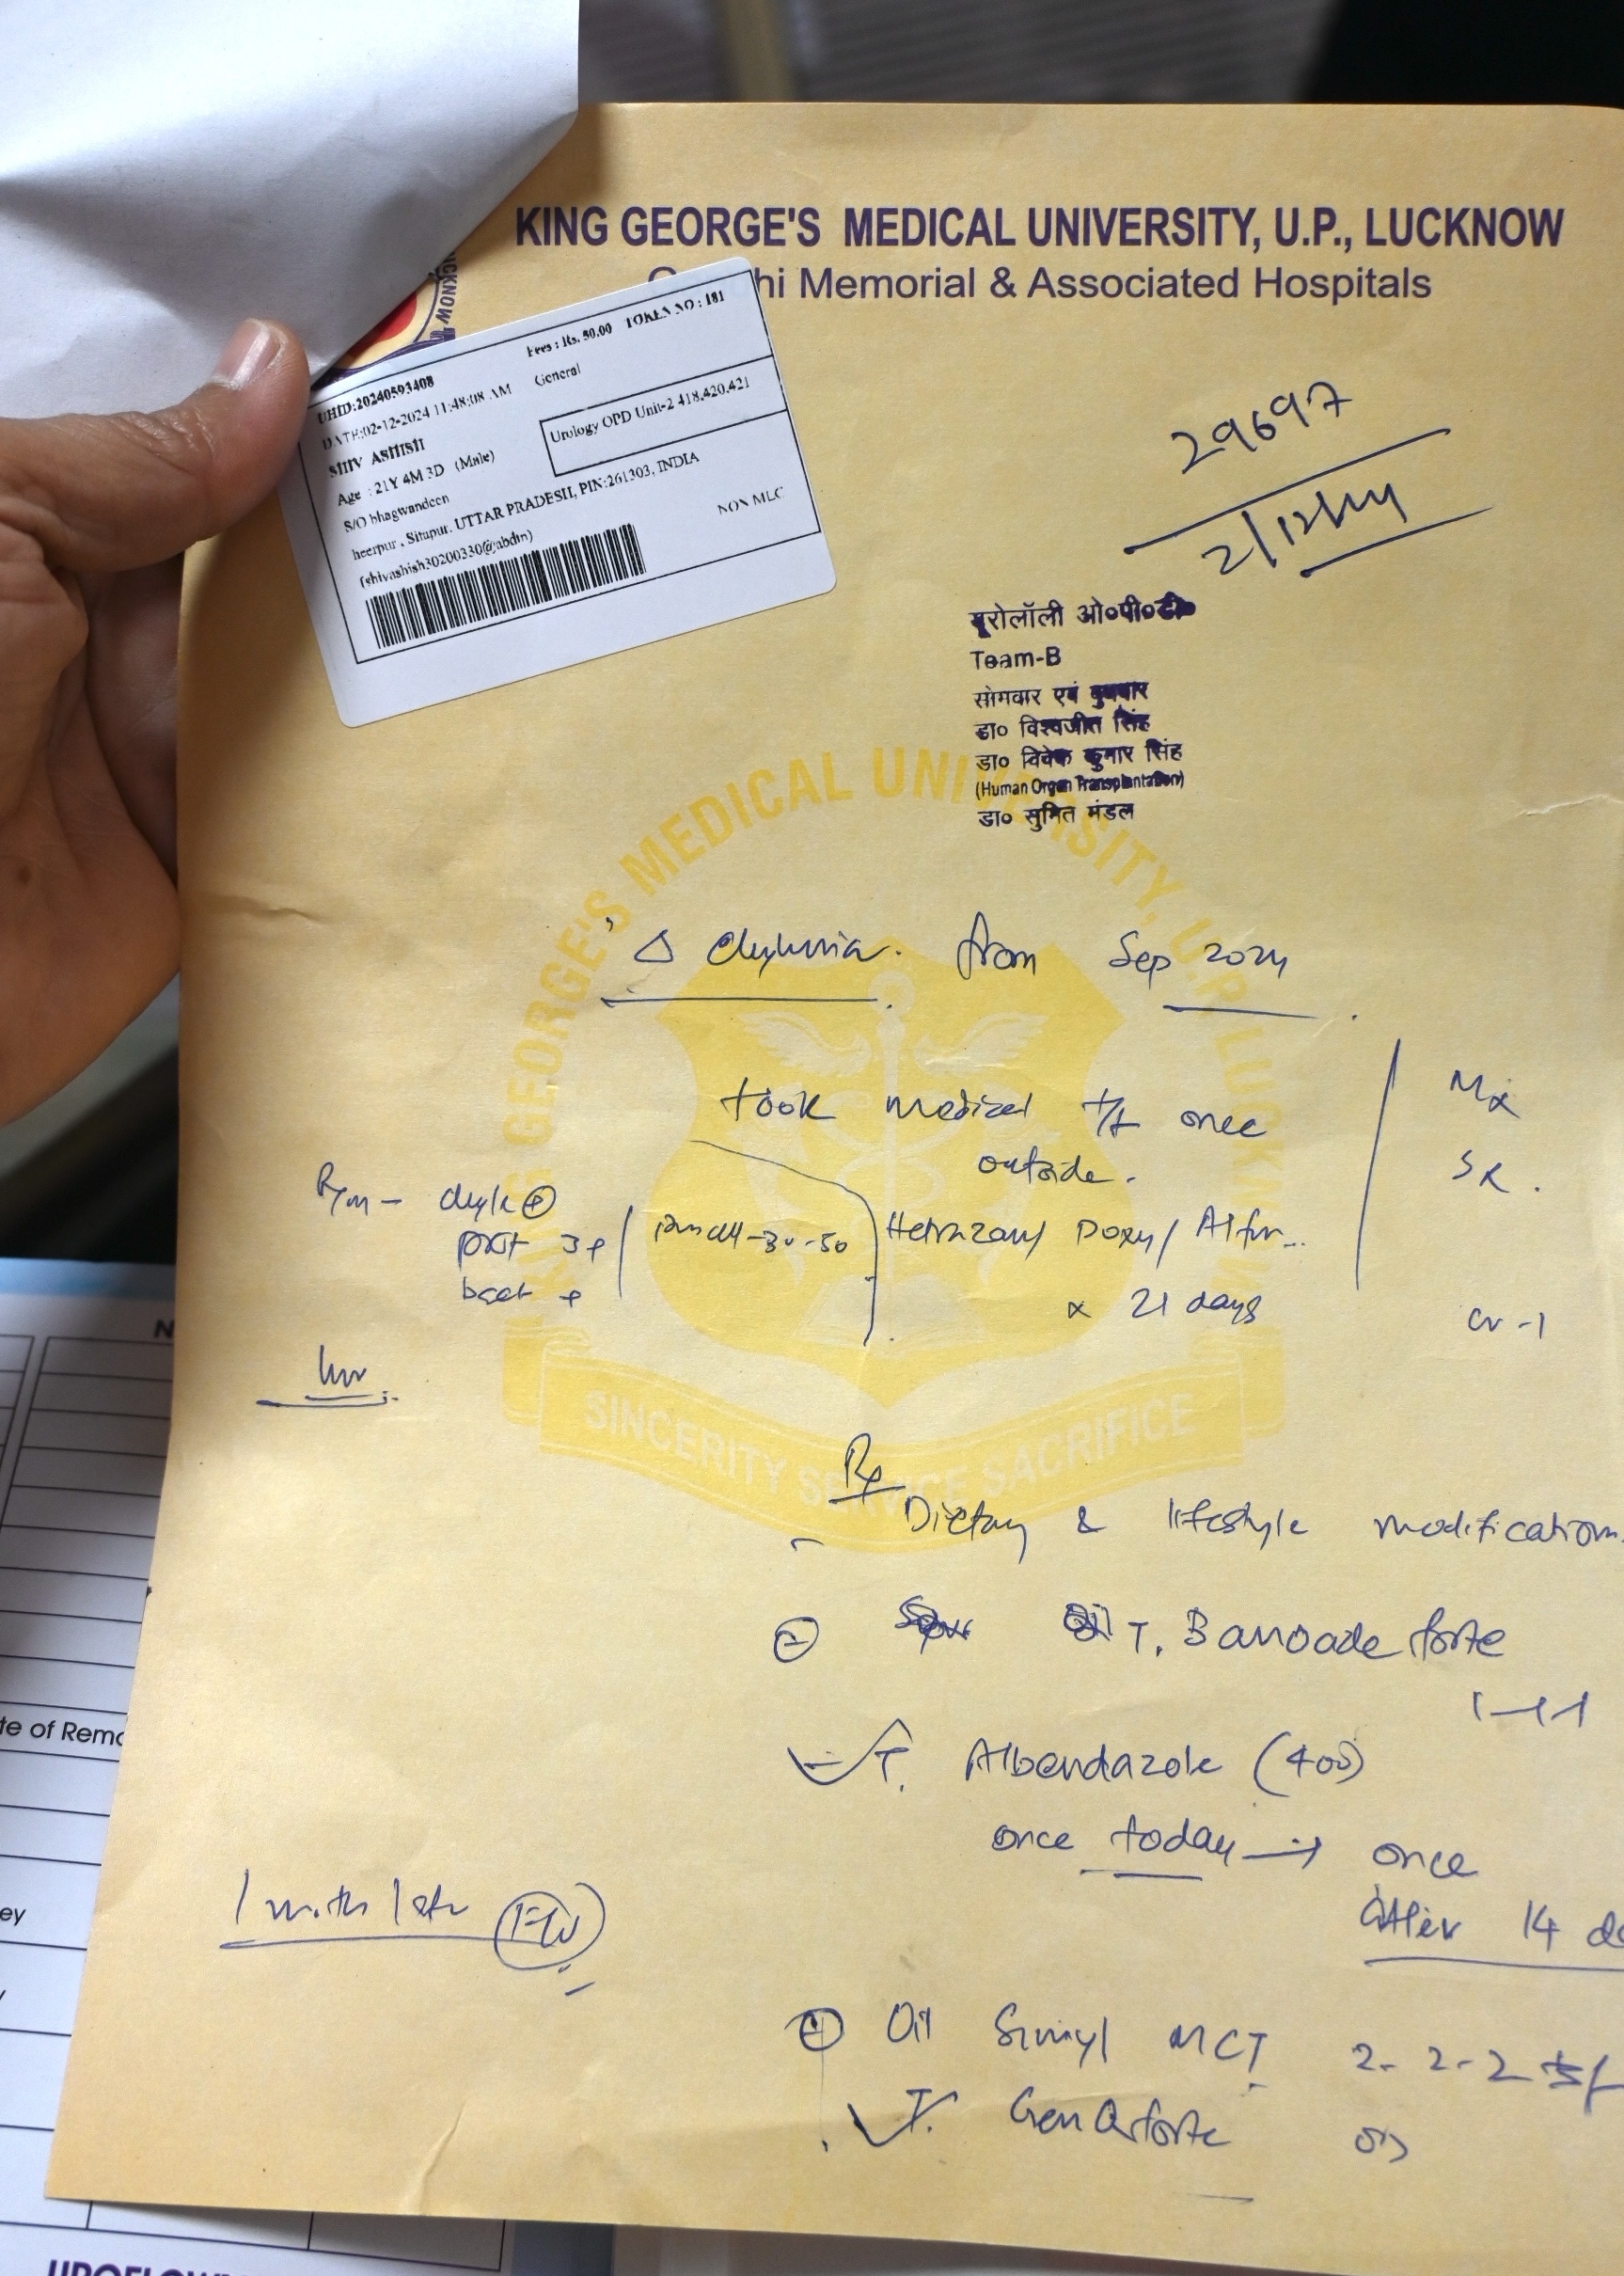 KING GEORGE'S MEDICAL UNIVERSITY, U.P., LUCKNOW
hi Memorial & Associated Hospitals
Fees : Rs. 50.00 TOKEN NO : 181
UHID:20240593408
General
DATE:02-12-2024 11:48:08 AM
Urology OPD Unit-2 418,420,421
SHIV ASHISH
Age : 21Y 4M 3D (Male)
S/O bhagwandeen
heerpur , Sitapur, UTTAR PRADESH, PIN:261303, INDIA
NON MLC
(shivashish30200330@abdm)
29697
2/12/24
यूरोलॉली ओ०पी०डी०
Team-B
सोमवार एवं बुधवार
डा० विश्वजीत सिंह
डा० विवेक कुमार सिंह
(Human Organ Transplantation)
डा० सुमित मंडल
KING GEORGE'S MEDICAL UNIVERSITY, U.P. LUCKNOW
Δ Chyluria. from Sep 2024
took medical t/t once
outside.
chyle ⊕
prot 3+
bact +
Hetrazan/ Doxy/
x 21 days
Cr -1
SINCERITY SERVICE SACRIFICE
Rx
Dietary & lifestyle modifications
T. Banocide forte
1-1-1
T. Albendazole (400)
once today → once
after 14 d
1 month later
Oil Simyl MCT 2-2-2
T. Gen Q forte OD
te of Remo
ey